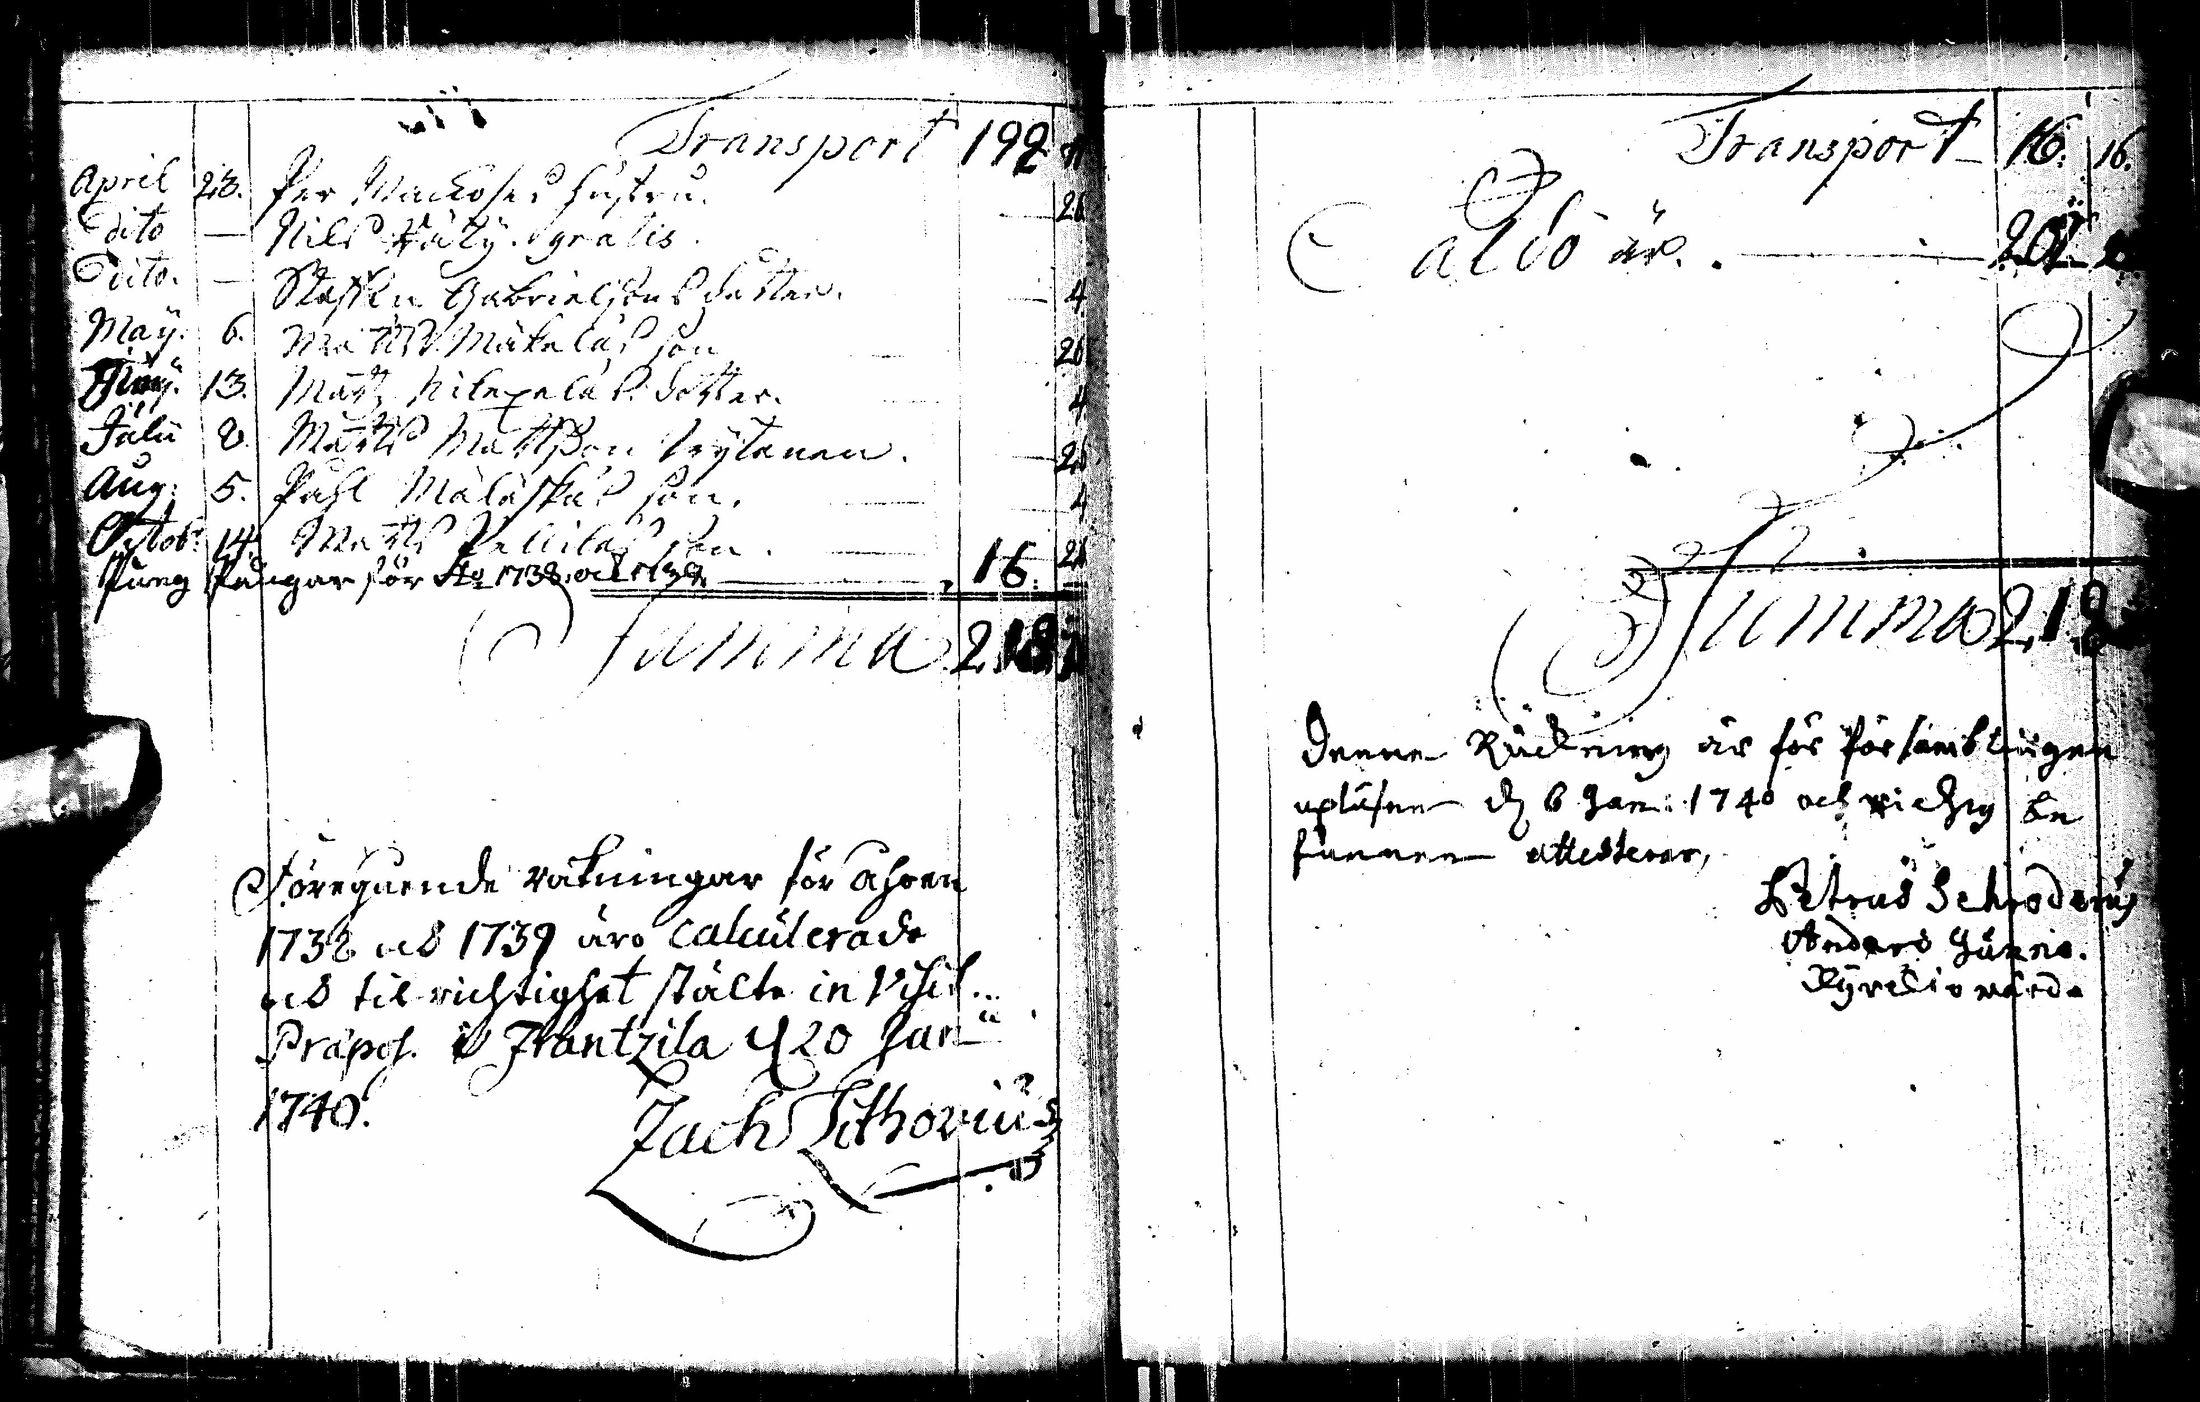 Transport 192
April 23. Per Mackoses hustru. 26
Dito — Nils gratis.
Dito. — Staffan Gabrielsons dotter. 4
Maÿ. 6. Matts Mäkeläs son 26
13. Matts dotter. 4
Julii 2. Matts Mattsson 26
Aug: 5. Påhl Mäläskäs son. 4
Octob: 14. Matts son. 26
Pung Pengar för Åo 1738. och 1739. 16.
Summa 218
Föreguende räkningar för åhren
1738 och 1739 äro Calculerade
och til richtighet stälte in Visit.
Præpos. i Frantzila d 20 Jan
1740.
Zach Lithovius
Transport 16. 16.
Saldo är. 202
Summa 218
Denne Räckning är för Församblingen
upläsen d 6 Jan: 1740 och richtig be
funnen attesterar,
Petrus Schroderus
Anders
Kyrckiowärde